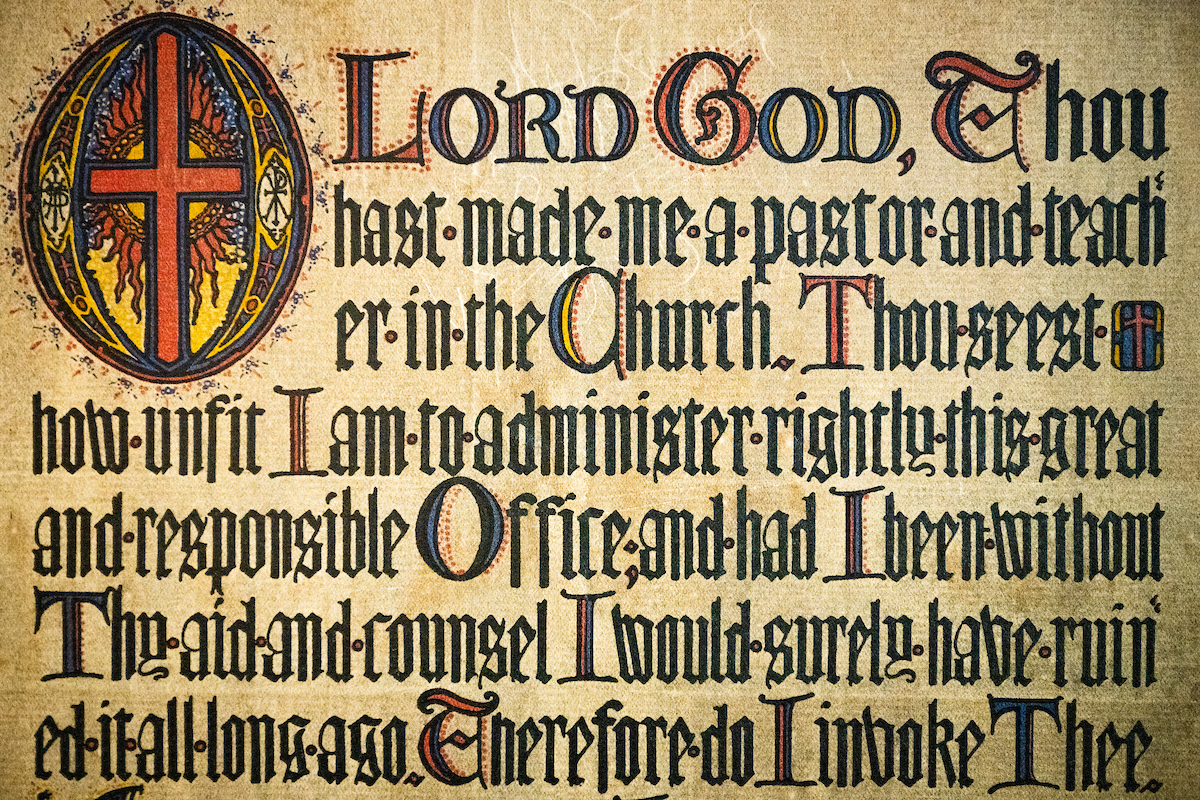 O LORD GOD, Thou
hast·made·me·a·pastor·and·teach‘
er·in·the Church. Thou·seest·
how·unfit I am·to·administer·rightly·this·great
and·responsible Office;and·had I been·without
Thy·aid·and·counsel I would·surely·have·ruin‘
ed·it·all·long·ago. Therefore·do I invoke Thee.